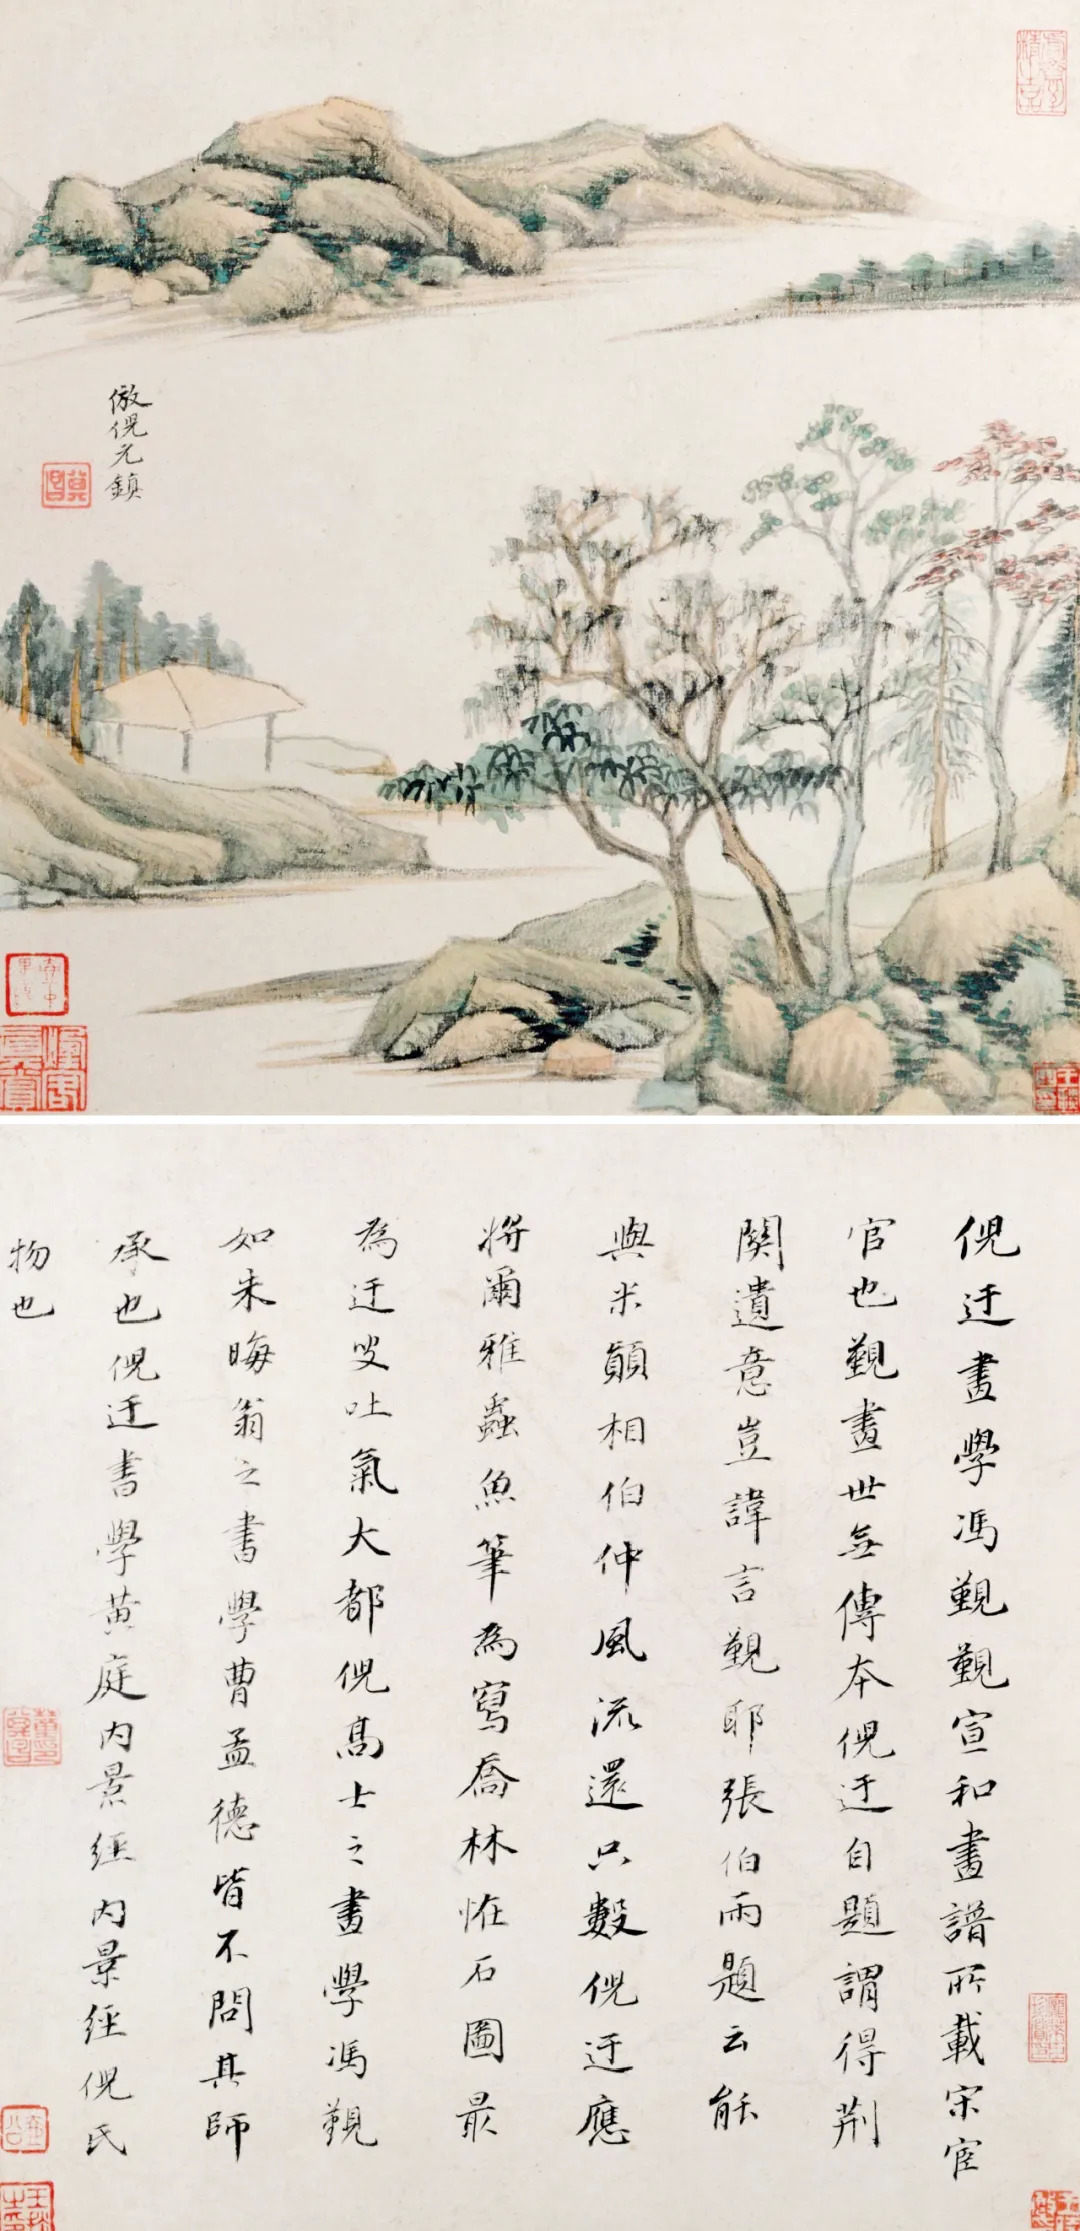 倣倪元鎮
煙客真賞
倪迂畫學馮覲覲宣和畫譜所載宋宦
官也覲畫世無傳本倪迂自題謂得荊
關遺意豈諱言覲耶張伯雨題云能
與米顛相伯仲風流還只數倪迂應
將爾雅蟲魚筆為寫喬林恠石圖最
為迂叟吐氣大都倪高士之畫學馮覲
如朱晦翁之書學曹孟德皆不問其師
承也倪迂書學黃庭內景經內景經倪氏
物也